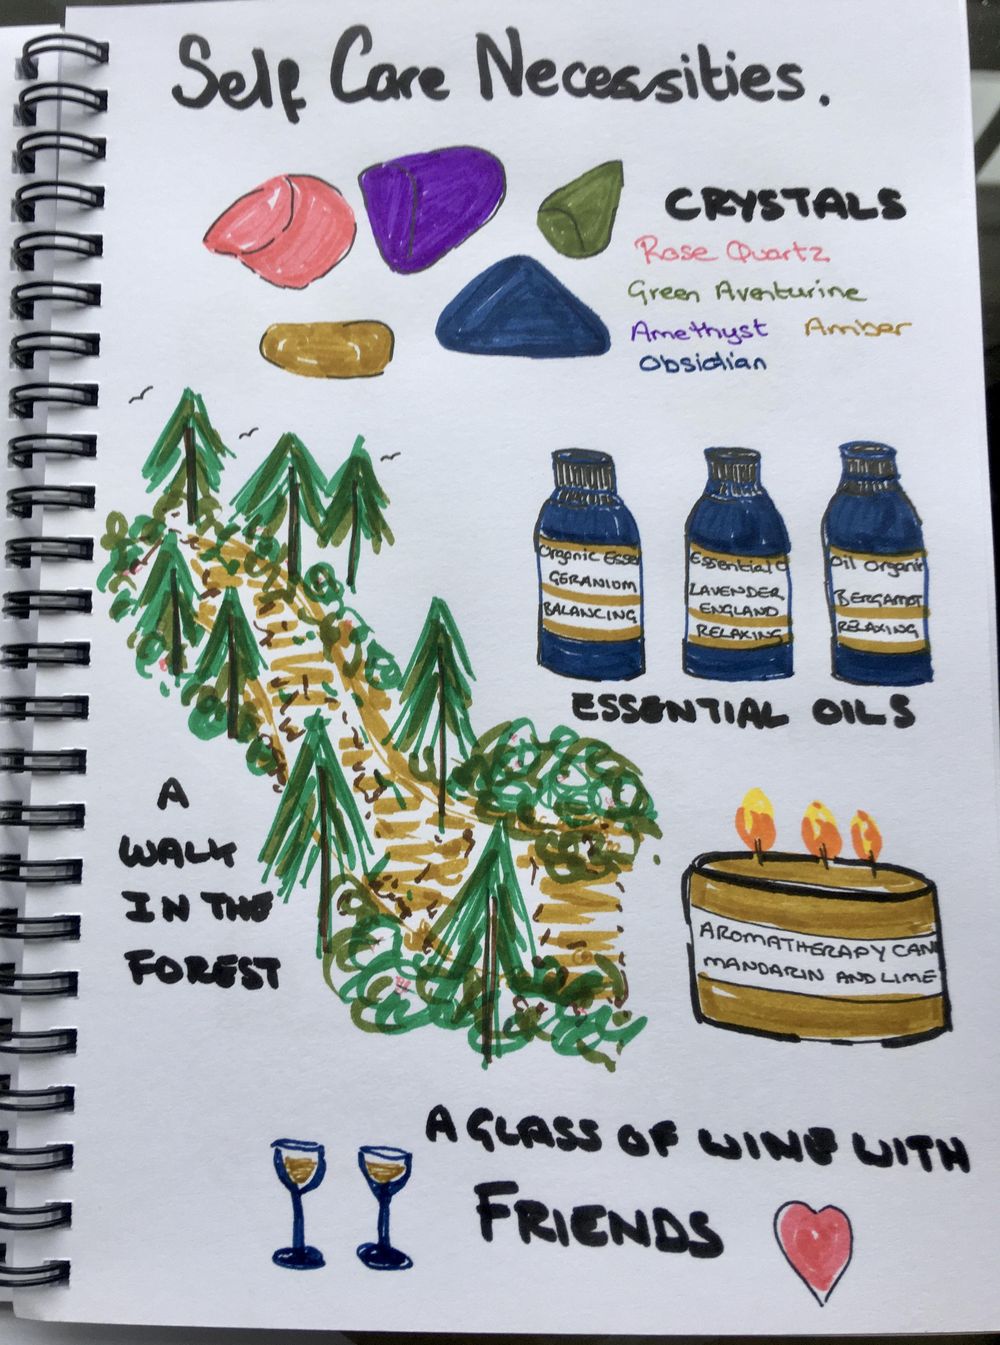 Self Care Necessities.
CRYSTALS
Rose Quartz
Green Aventurine
Amethyst Amber
Obsidian
Organic Essen
GERANIUM
BALANCING
Essential O
LAVENDER
ENGLAND
RELAXING
Oil Organic
BERGAMOT
RELAXING
ESSENTIAL OILS
A
WALK
IN THE
FOREST
AROMATHERAPY CAN
MANDARIN AND LIME
A GLASS OF WINE WITH
FRIENDS